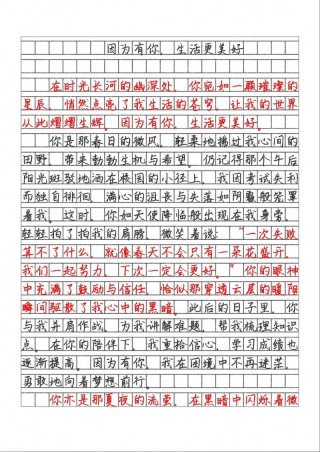 因为有你，生活更美好
在时光长河的幽深处，你宛如一颗璀璨的
星辰，悄然点亮了我生活的苍穹，让我的世界
从此熠熠生辉。因为有你，生活更美好。
你是那春日的微风，轻柔地拂过我心间的
田野，带来勃勃生机与希望。仍记得那个午后
阳光斑驳地洒在校园的小径上，我因考试失利
而独自徘徊，满心的沮丧与失落如阴霾般笼罩
着我。这时，你如天使降临般出现在我身旁，
轻轻拍了拍我的肩膀，微笑着说："一次失败
算不了什么，就像春天不会只有一朵花盛开，
我们一起努力，下次一定会更好。"你的眼神
中充满了鼓励与信任，恰似那穿透云层的暖阳
瞬间驱散了我心中的黑暗。此后的日子里，你
与我并肩作战，为我讲解难题，帮我梳理知识
点。在你的陪伴下，我重拾信心，学习成绩也
逐渐提高。因为有你，我在困境中不再迷茫，
勇敢地向着梦想前行。
你亦是那夏夜的流萤，在黑暗中闪烁着微